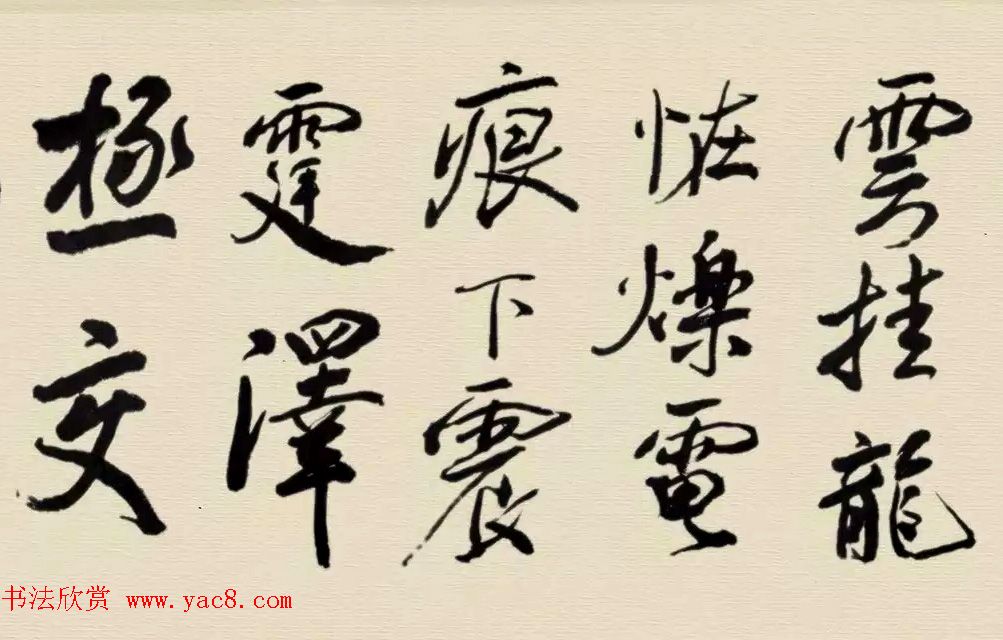 雲挂龍
恠爍電
痕下震
霆澤
極交
书法欣赏 www.yac8.com